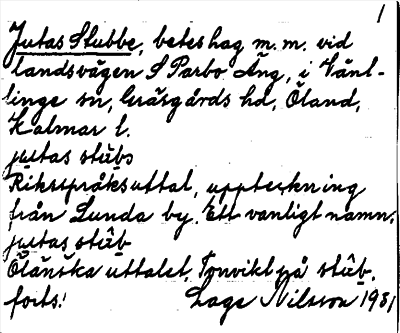 1
Jutas Stubbe, beteshag m.m. vid
landsvägen S Parbo Äng, i Vänt-
linge sn, Gräsgårds hd, Öland,
Kalmar l.
jutas stubs
Riksspråksuttal, uppteckning
från Lunda by. Ett vanligt namn.
jutas stub
Öländska uttalet, Tonvikt på stub.
forts! Lage Nilsson 1931